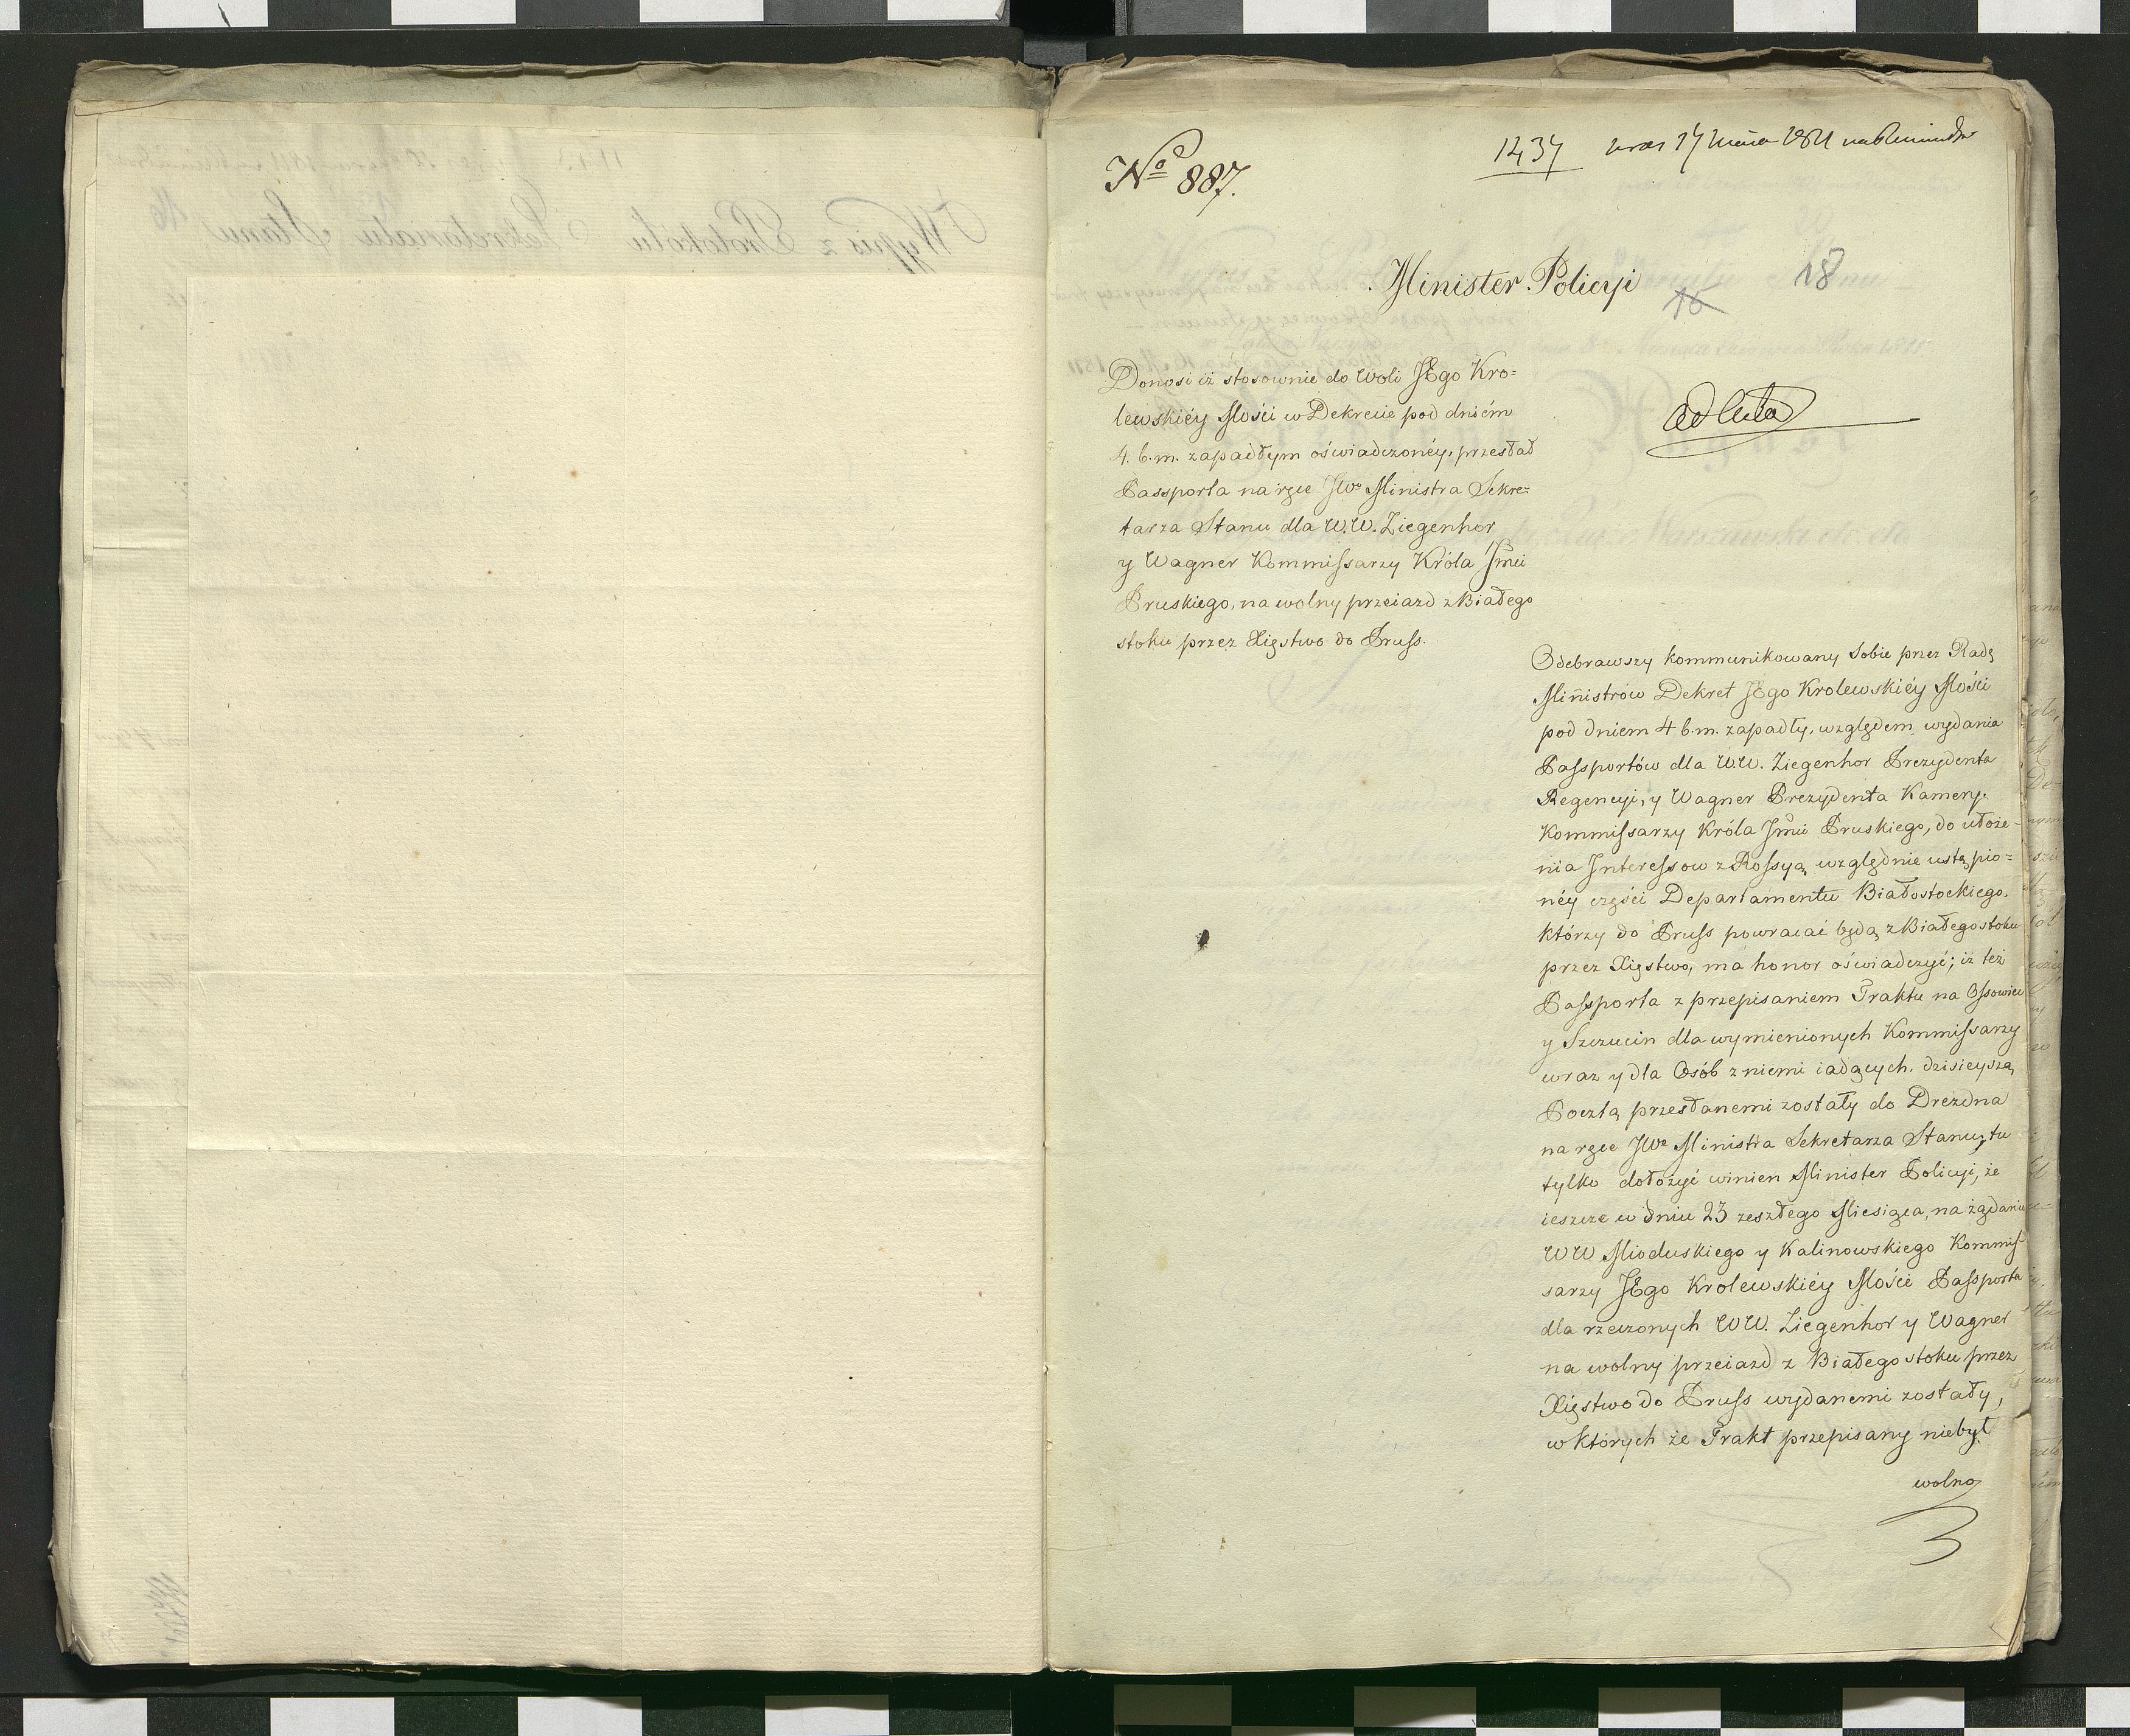 No 887.
1437
Minister Policyi
16
18
ad Acta
Donosi iż stosownie do Woli JEgo Kro=
lewskiéy Mości w Dekrecie pod dniém
4. b. m. zapadłym oświadczonéy, przesłał
Passporta na ręce JWo Ministra Sekre=
tarza Stanu dla W.W. Ziegenhor
y Wagner Kommissarzy Króla Jmci
Pruskiego, na wolny przeiazd z Białego
stoku przez Xięstwo do Pruss.
Odebrawszy kommunikowany Sobie przez Radę
Ministrów Dekret JEgo Krolewskiéy Mości
pod dniem 4 b. m. zapadły, względem wydania
Passportów dla W.W. Ziegenhor Prezydenta
Regencyi, y Wagner Prezydenta Kamery,
Kommissarzy Króla Jmci Pruskiego, do ułoże-
nia Interessow z Rossyą względnie ustąpio=
néy części Departamentu Białostockiego,
którzy do Pruss powracać będą z Białegostoku
przez Xięstwo, ma honor oświadczyć; iż też
Passporta z przepisaniem Traktu na Ossowiec
y Szczucin dla wymienionych Kommissarzy
wraz y dla Osób z niemi iadących, dzisieyszą
Pocztą przesłanemi zostały do Drezdna
na ręce JWo Ministra Sekretarza Stanu, tu
tylko dołożyć winien Minister Policyi, że
ieszcze w dniu 23 zeszłego Miesiąca, na żądanie
WW Mioduskiego y Kalinowskiego Kommis-
sarzy JEgo Krolewskiéy Mości Passporta
dla rzeczonych WW. Ziegenhor y Wagner
na wolny przeiazd z Białegostoku przez
Xięstwo do Pruss wydanemi zostały,
w których że Trakt przepisany niebył
wolno